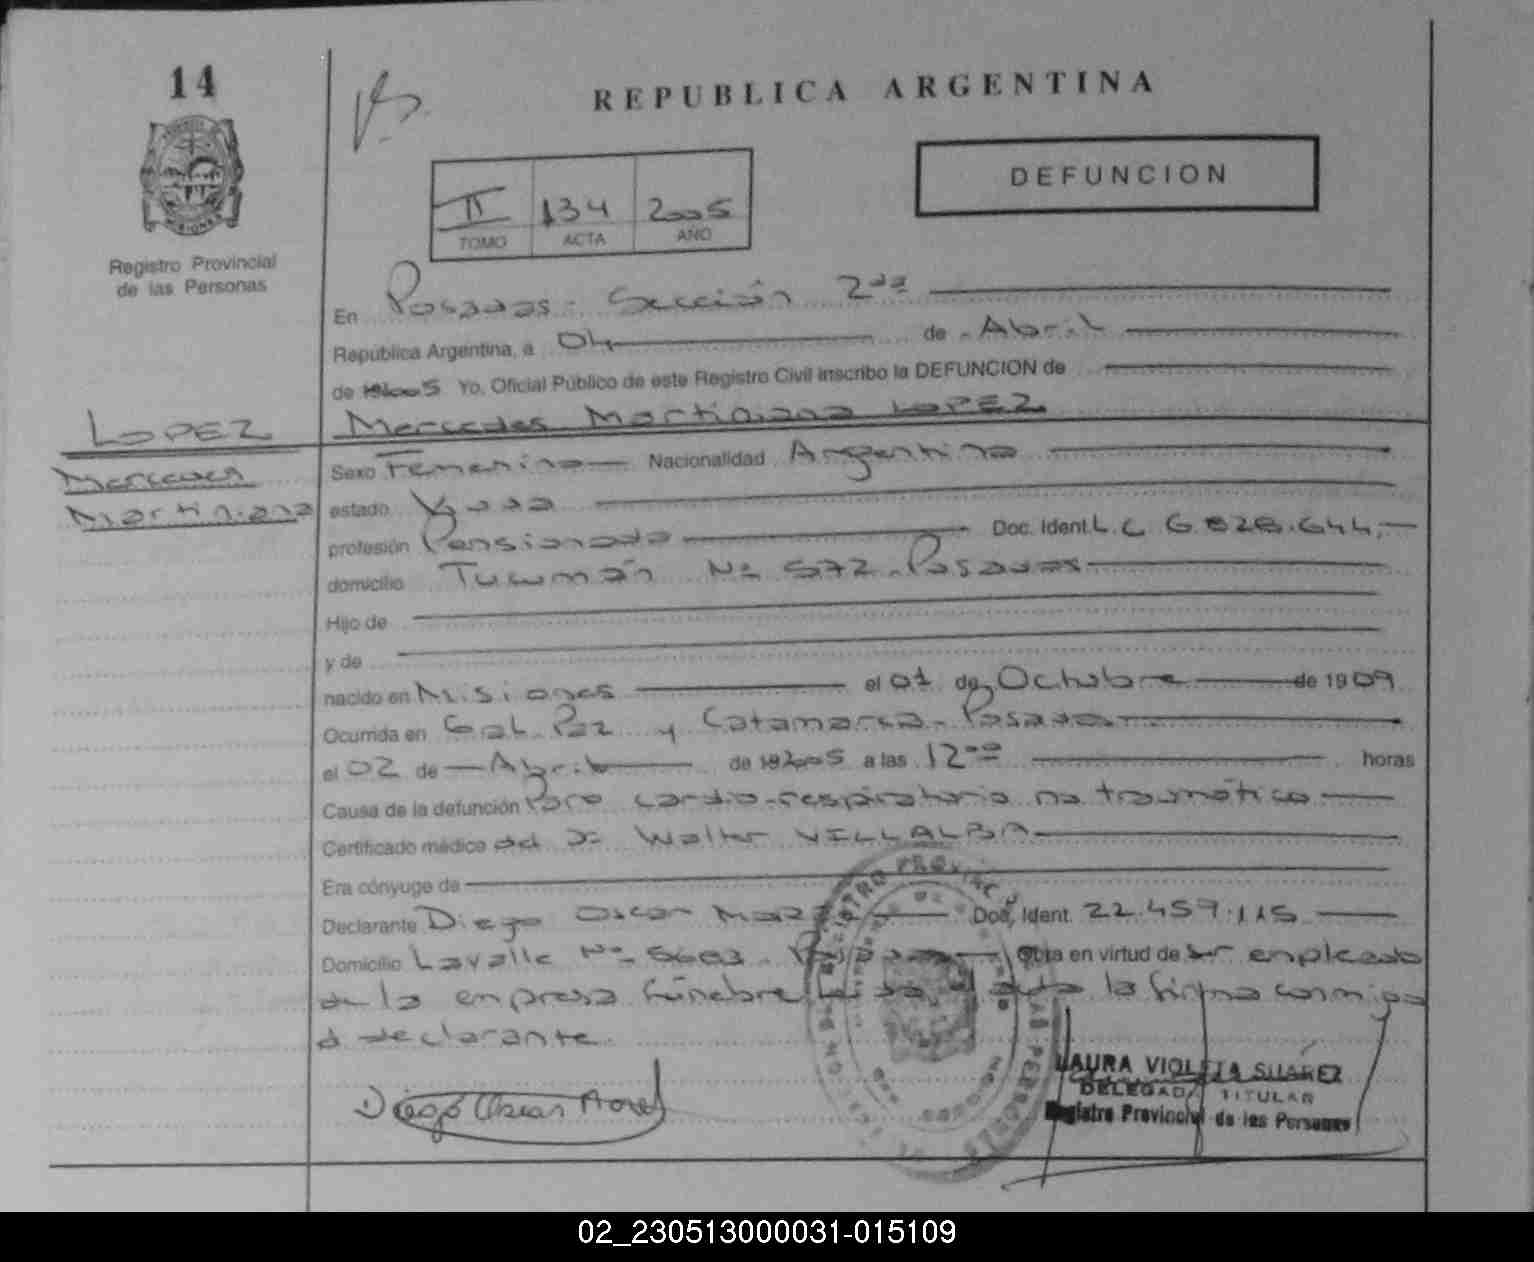 14
REPUBLICA ARGENTINA
DEFUNCION
II 134 2005
TOMO ACTA AÑO
Registro Provincial
de las Personas
En Posadas - Sección 2da
República Argentina, a 04 de Abril
de 2005 Yo, Oficial Público de este Registro Civil inscribo la DEFUNCION de
LOPEZ
Mercedes Martiniana LOPEZ
Mercedes
Martiniana
Sexo Femenino Nacionalidad Argentina
estado Viuda
profesión Pensionada Doc. Ident. L.C 6.828.644
domicilio Tucumán Nº 572 - Posadas
Hijo de
y de
nacido en Misiones el 01 de Octubre de 1909
Ocurrida en Gral. Paz y Catamarca - Posadas
el 02 de Abril de 2005 a las 12ºº horas
Causa de la defunción Paro cardio-respiratorio no traumático
Certificado médico del Dr Walter VILLALBA
Era cónyuge de
Declarante Diego Oscar Doc. Ident. 22.459.115
Domicilio Lavalle Nº 5603 - Posadas Obra en virtud de ser empleado
de la empresa fúnebre la firma conmigo
el declarante.
REGISTRO PROVINCIAL DE LAS PERSONAS
MISIONES
Diego Oscar
LAURA VIOLETA SUAREZ
DELEGADA TITULAR
Registro Provincial de las Personas
02_230513000031-015109